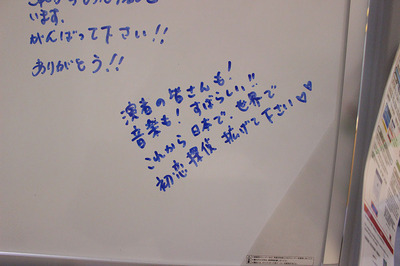 います。
がんばって下さい!!
ありがとう!!
演者の皆さんも!
音楽も! すばらしい!!
これから 日本で、世界で
初恋探偵 拡げて下さい♡♡